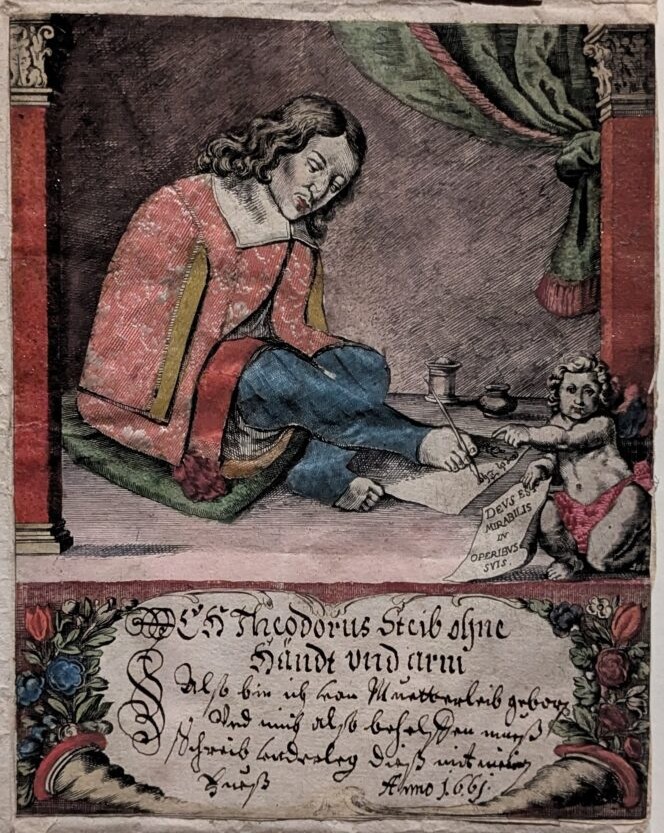 DEVS EST
MIRABILIS
IN
OPERIBVS
SVIS.
ICH Theodorus Steib ohne
Händt vnd arm
Also bin ich von Muetterleib geborn
Vnd mich also behelffen mueß
Schreib dieß mit mein
Fueß Anno 1661.